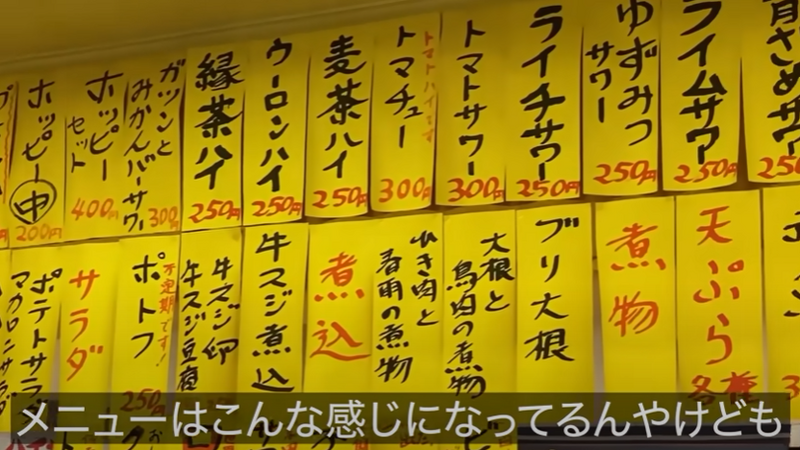 青さめサワー
250
ライムサワー
250円
ゆずみつ
サワー
250円
ライチサワー
250円
トマトサワー
300円
トマトハイです
トマチュー
300円
麦茶ハイ
250円
ウーロンハイ
250円
縁茶ハイ
250円
ガツンと
みかんバーサワー
300
ホッピー
セット
400円
ホッピー
中
200円
天ぷら
各種
煮物
ブリ大根
大根と
鳥肉の煮物
ひき肉と
春雨の煮物
煮込
牛スジ煮込
牛スジ卵
牛スジ豆腐
不定期です!
ポトフ
250円
サラダ
ポテトサラダ
マカロニサラダ
メニューはこんな感じになってるんやけども